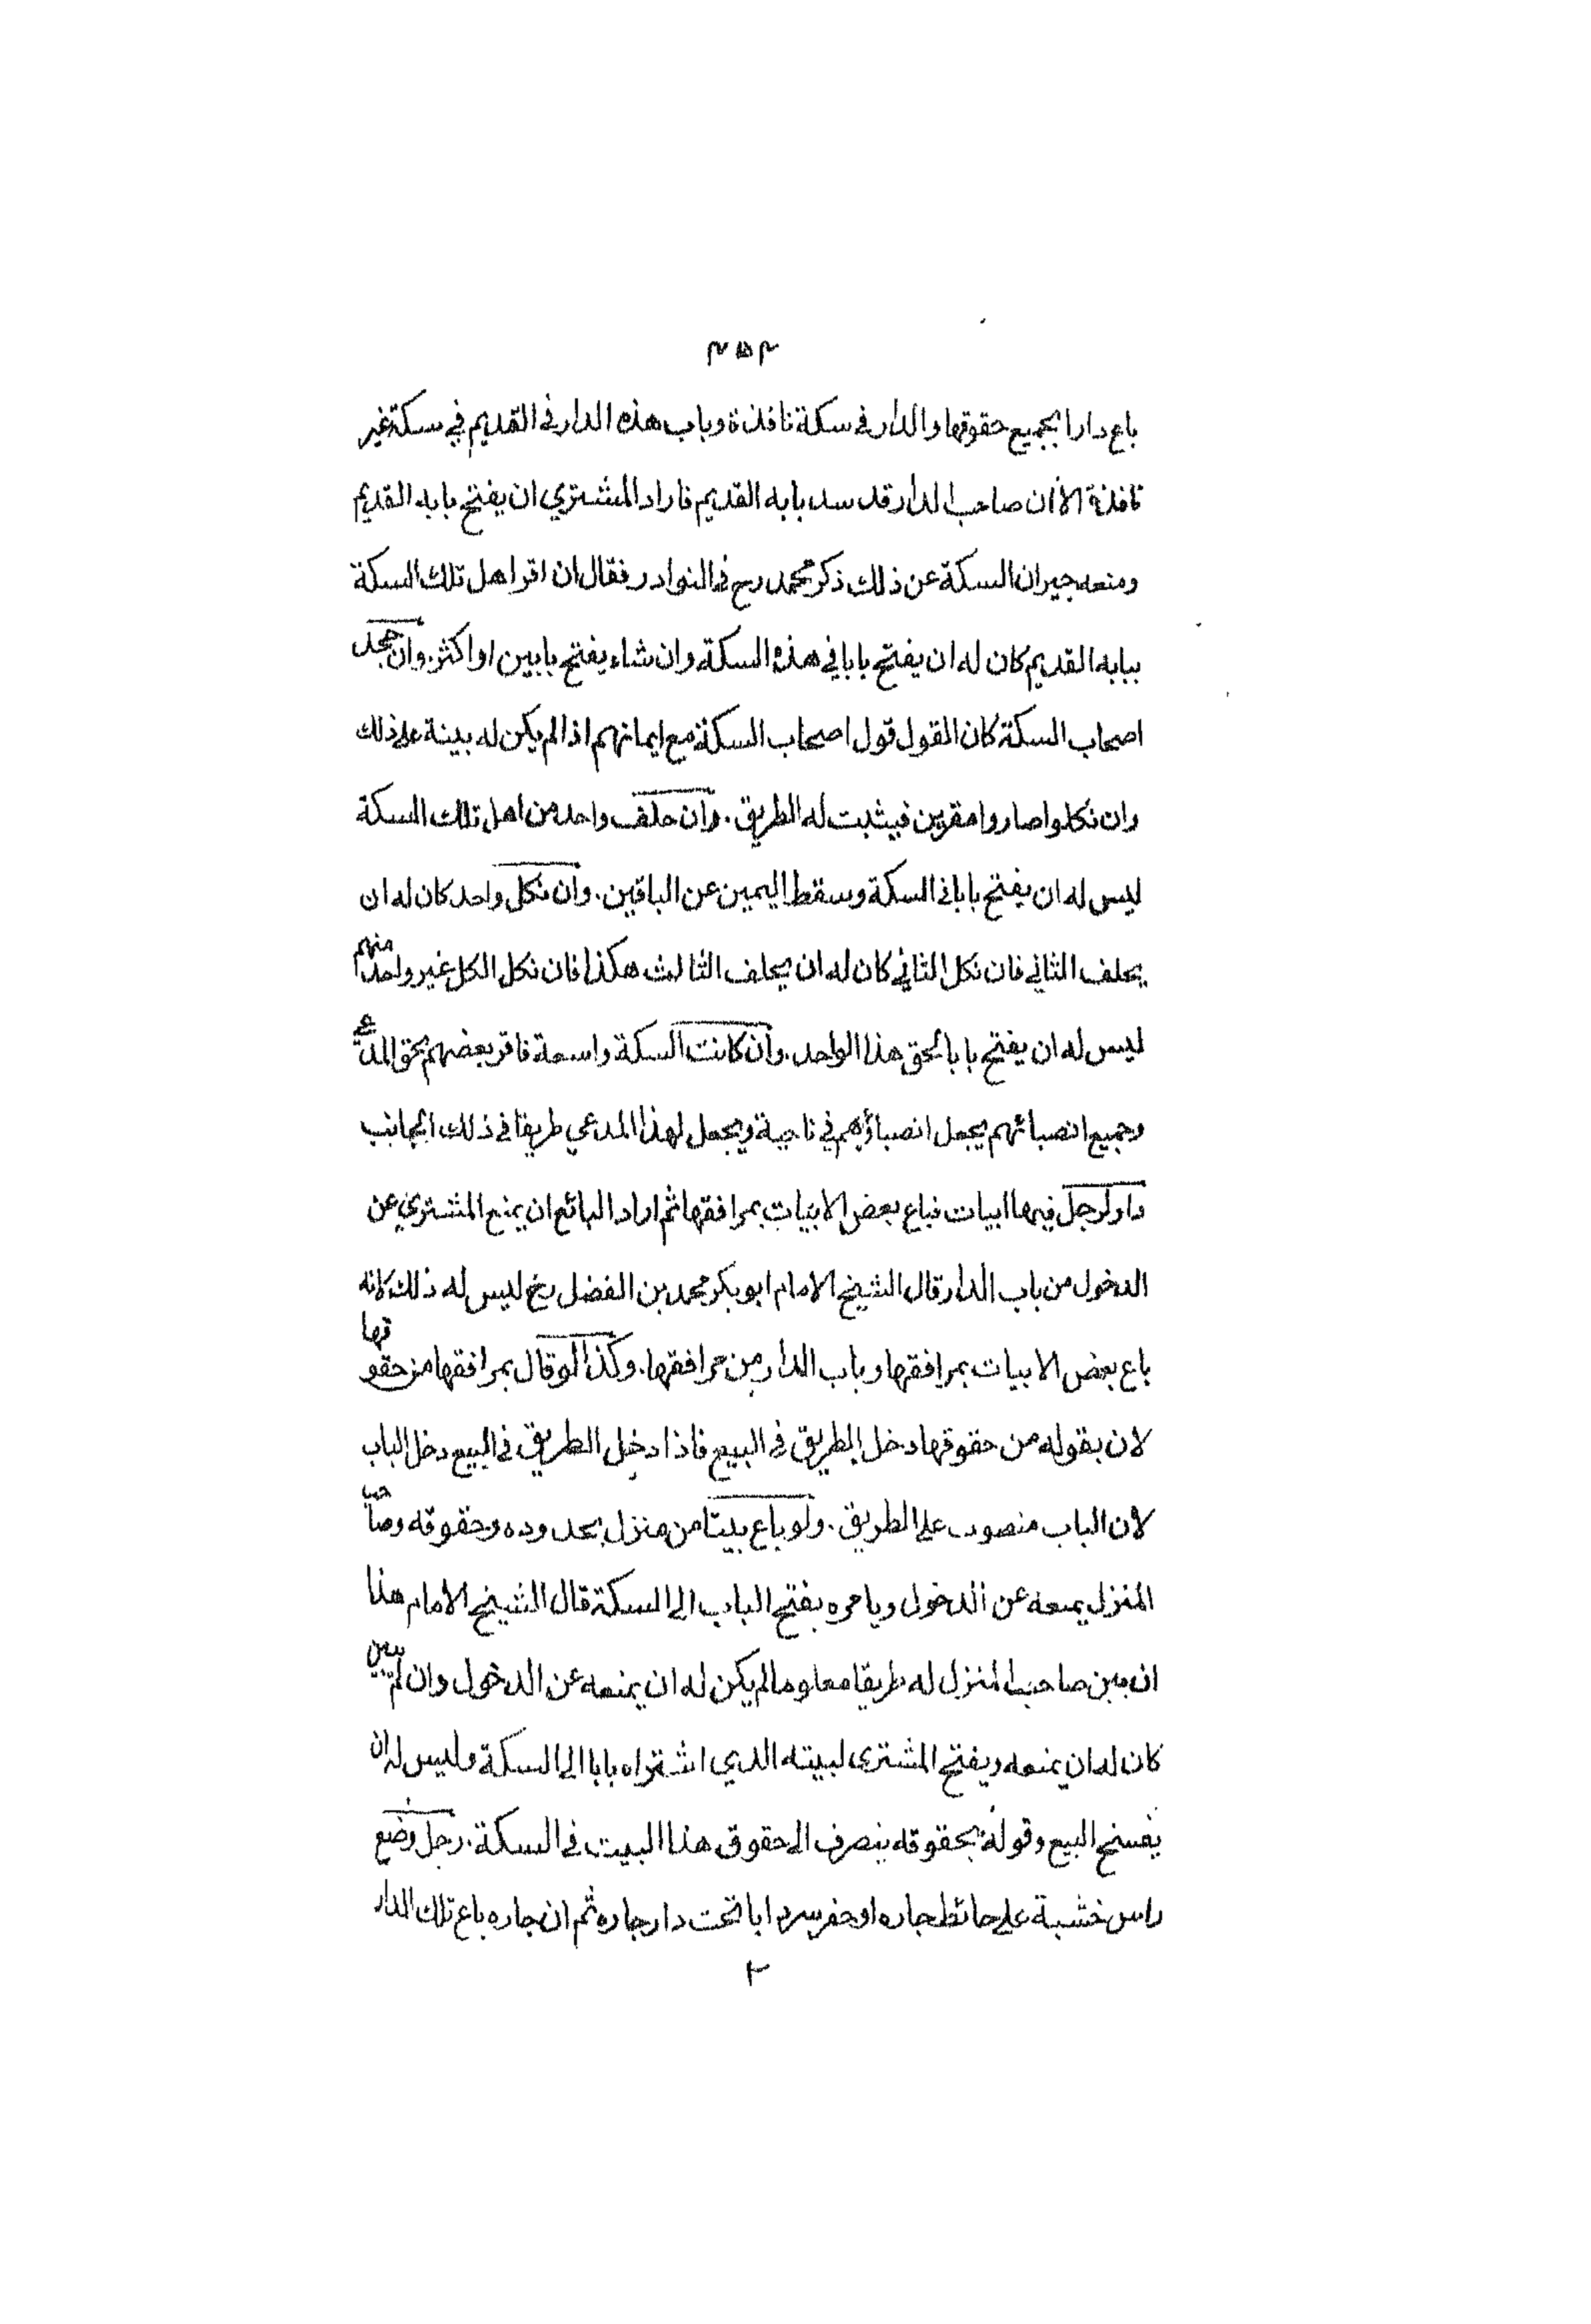 ٣٥٢
باع دارا بجميع حقوقها والدار في سكة نافذة وباب هذه الدار في القديم في سكة غير
نافذة الا ان صاحب الدار قد سد بابه القديم فاراد المشتري ان يفتح بابه القديم
ومنعه جيران السكة عن ذلك ذكر محمد رح في النوادر فقال ان اقر اهل تلك السكة
ببابه القديم كان له ان يفتح بابا في هذه السكة وان شاء يفتح بابين او اكثر. وان جحد
اصحاب السكة كان القول قول اصحاب السكة مع ايمانهم اذا لم يكن له بينة على ذلك
وان نكلوا صاروا مقرين فيثبت له الطريق. وان حلف واحد من اهل تلك السكة
ليس له ان يفتح بابا في السكة وسقط اليمين عن الباقين. وان نكل واحد كان له ان
يحلف الثاني فان نكل الثاني كان له ان يحلف الثالث هكذا فان نكل الكل غير واحد منهم
ليس له ان يفتح بابا لحق هذا الواحد. وان كانت السكة واسعة فاقر بعضهم بحق المدعي
وجميع انصبائهم يجعل انصباؤهم في ناحية ويجعل لهذا المدعي طريقا في ذلك الجانب
دار لرجل فيها ابيات فباع بعض الابيات بمرافقها ثم اراد البائع ان يمنع المشتري عن
الدخول من باب الدار قال الشيخ الامام ابو بكر محمد بن الفضل رح ليس له ذلك لانه
باع بعض الابيات بمرافقها وباب الدار من مرافقها. وكذا لو قال بمرافقها من حقوقها
لان بقوله من حقوقها دخل الطريق في البيع فاذا دخل الطريق في البيع دخل الباب
لان الباب منصوب على الطريق. ولو باع بيتا من منزل بحدوده وحقوقه وصاحب
المنزل يمنعه عن الدخول ويامره بفتح الباب الى السكة قال الشيخ الامام هذا
ان بين صاحب المنزل له طريقا معلوما لم يكن له ان يمنعه عن الدخول وان لم يبين
كان له ان يمنعه ويفتح المشتري لبيته الذي اشتراه بابا الى السكة وليس له ان
يفسخ البيع وقوله بحقوقه ينصرف الى حقوق هذا البيت في السكة. رجل وضع
راس خشبة على حائط جاره او حفر سردابا تحت دار جاره ثم ان جاره باع تلك الدار
٢